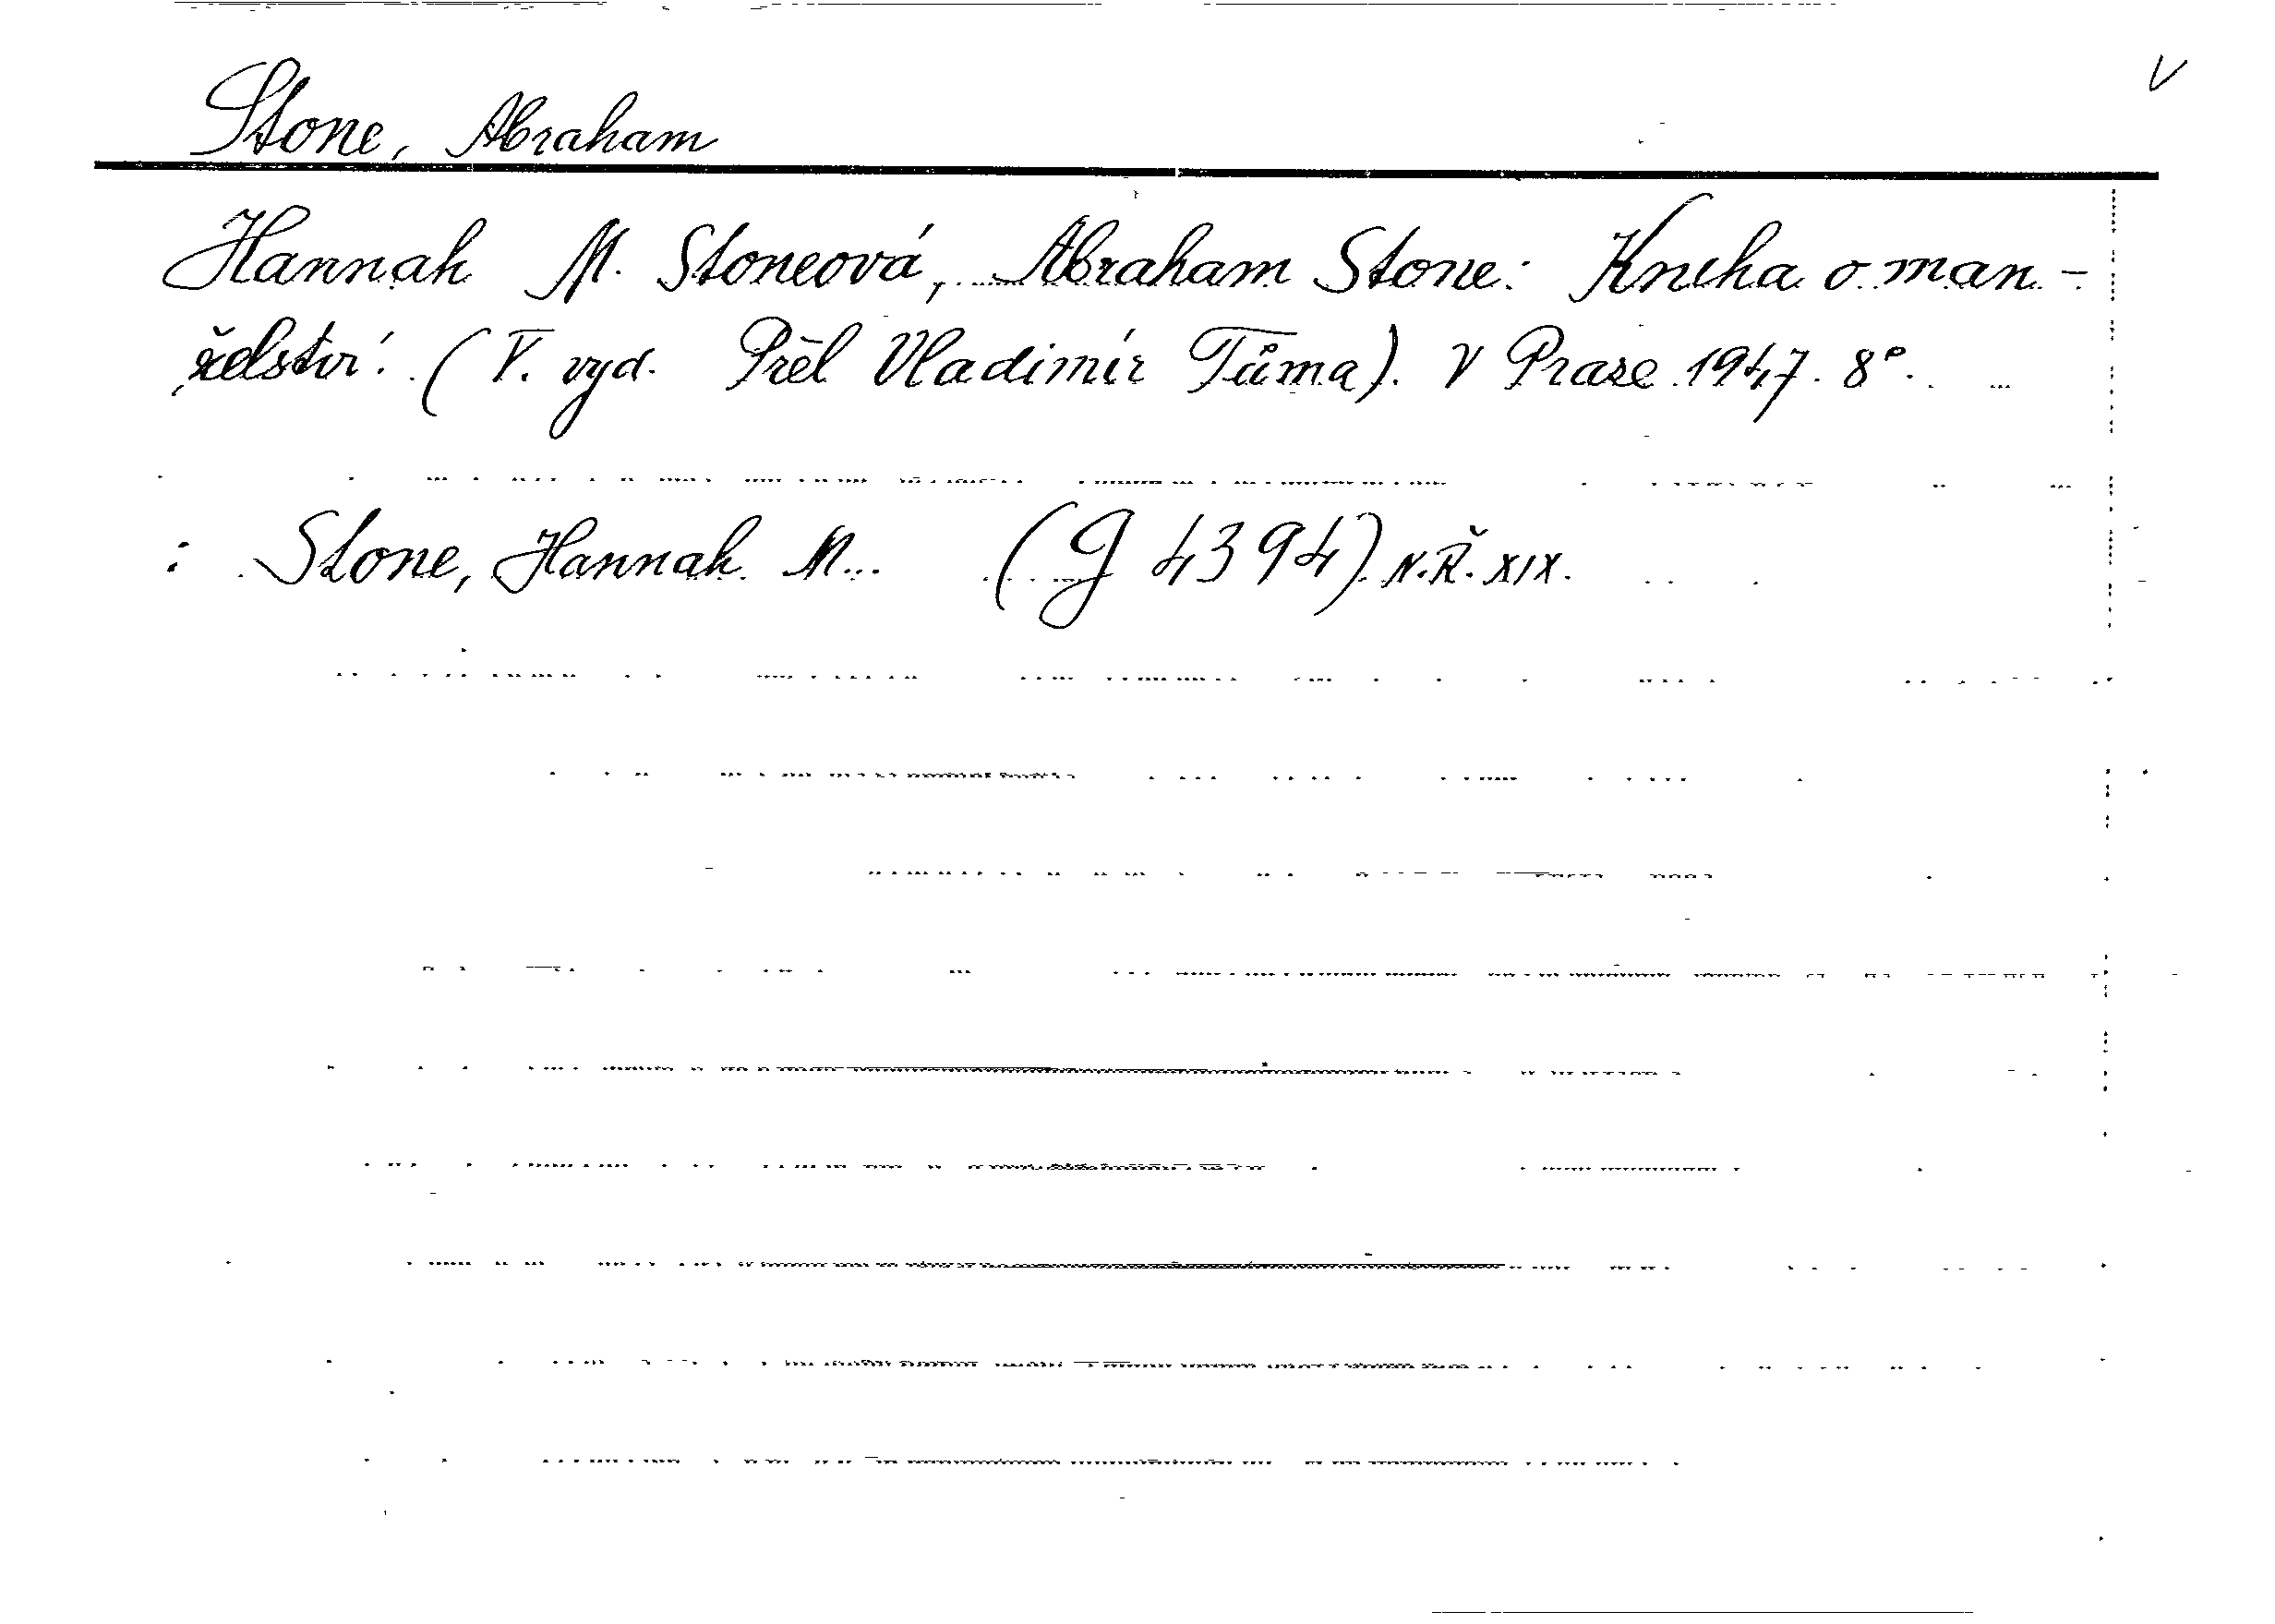 V
Stone, Abraham
Hannah M. Stoneová, Abraham Stone: Kniha o man-
želství. (V. vyd. Přel Vladimír Tůma). V Praze 1947. 8°.
: Stone, Hannah M.. (G 4394) N.Ř. XIX.